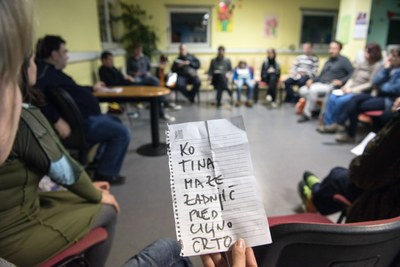 KO
TINA
MAŽE
ZADNJIČ
PRED
CILJNO
ČRTO